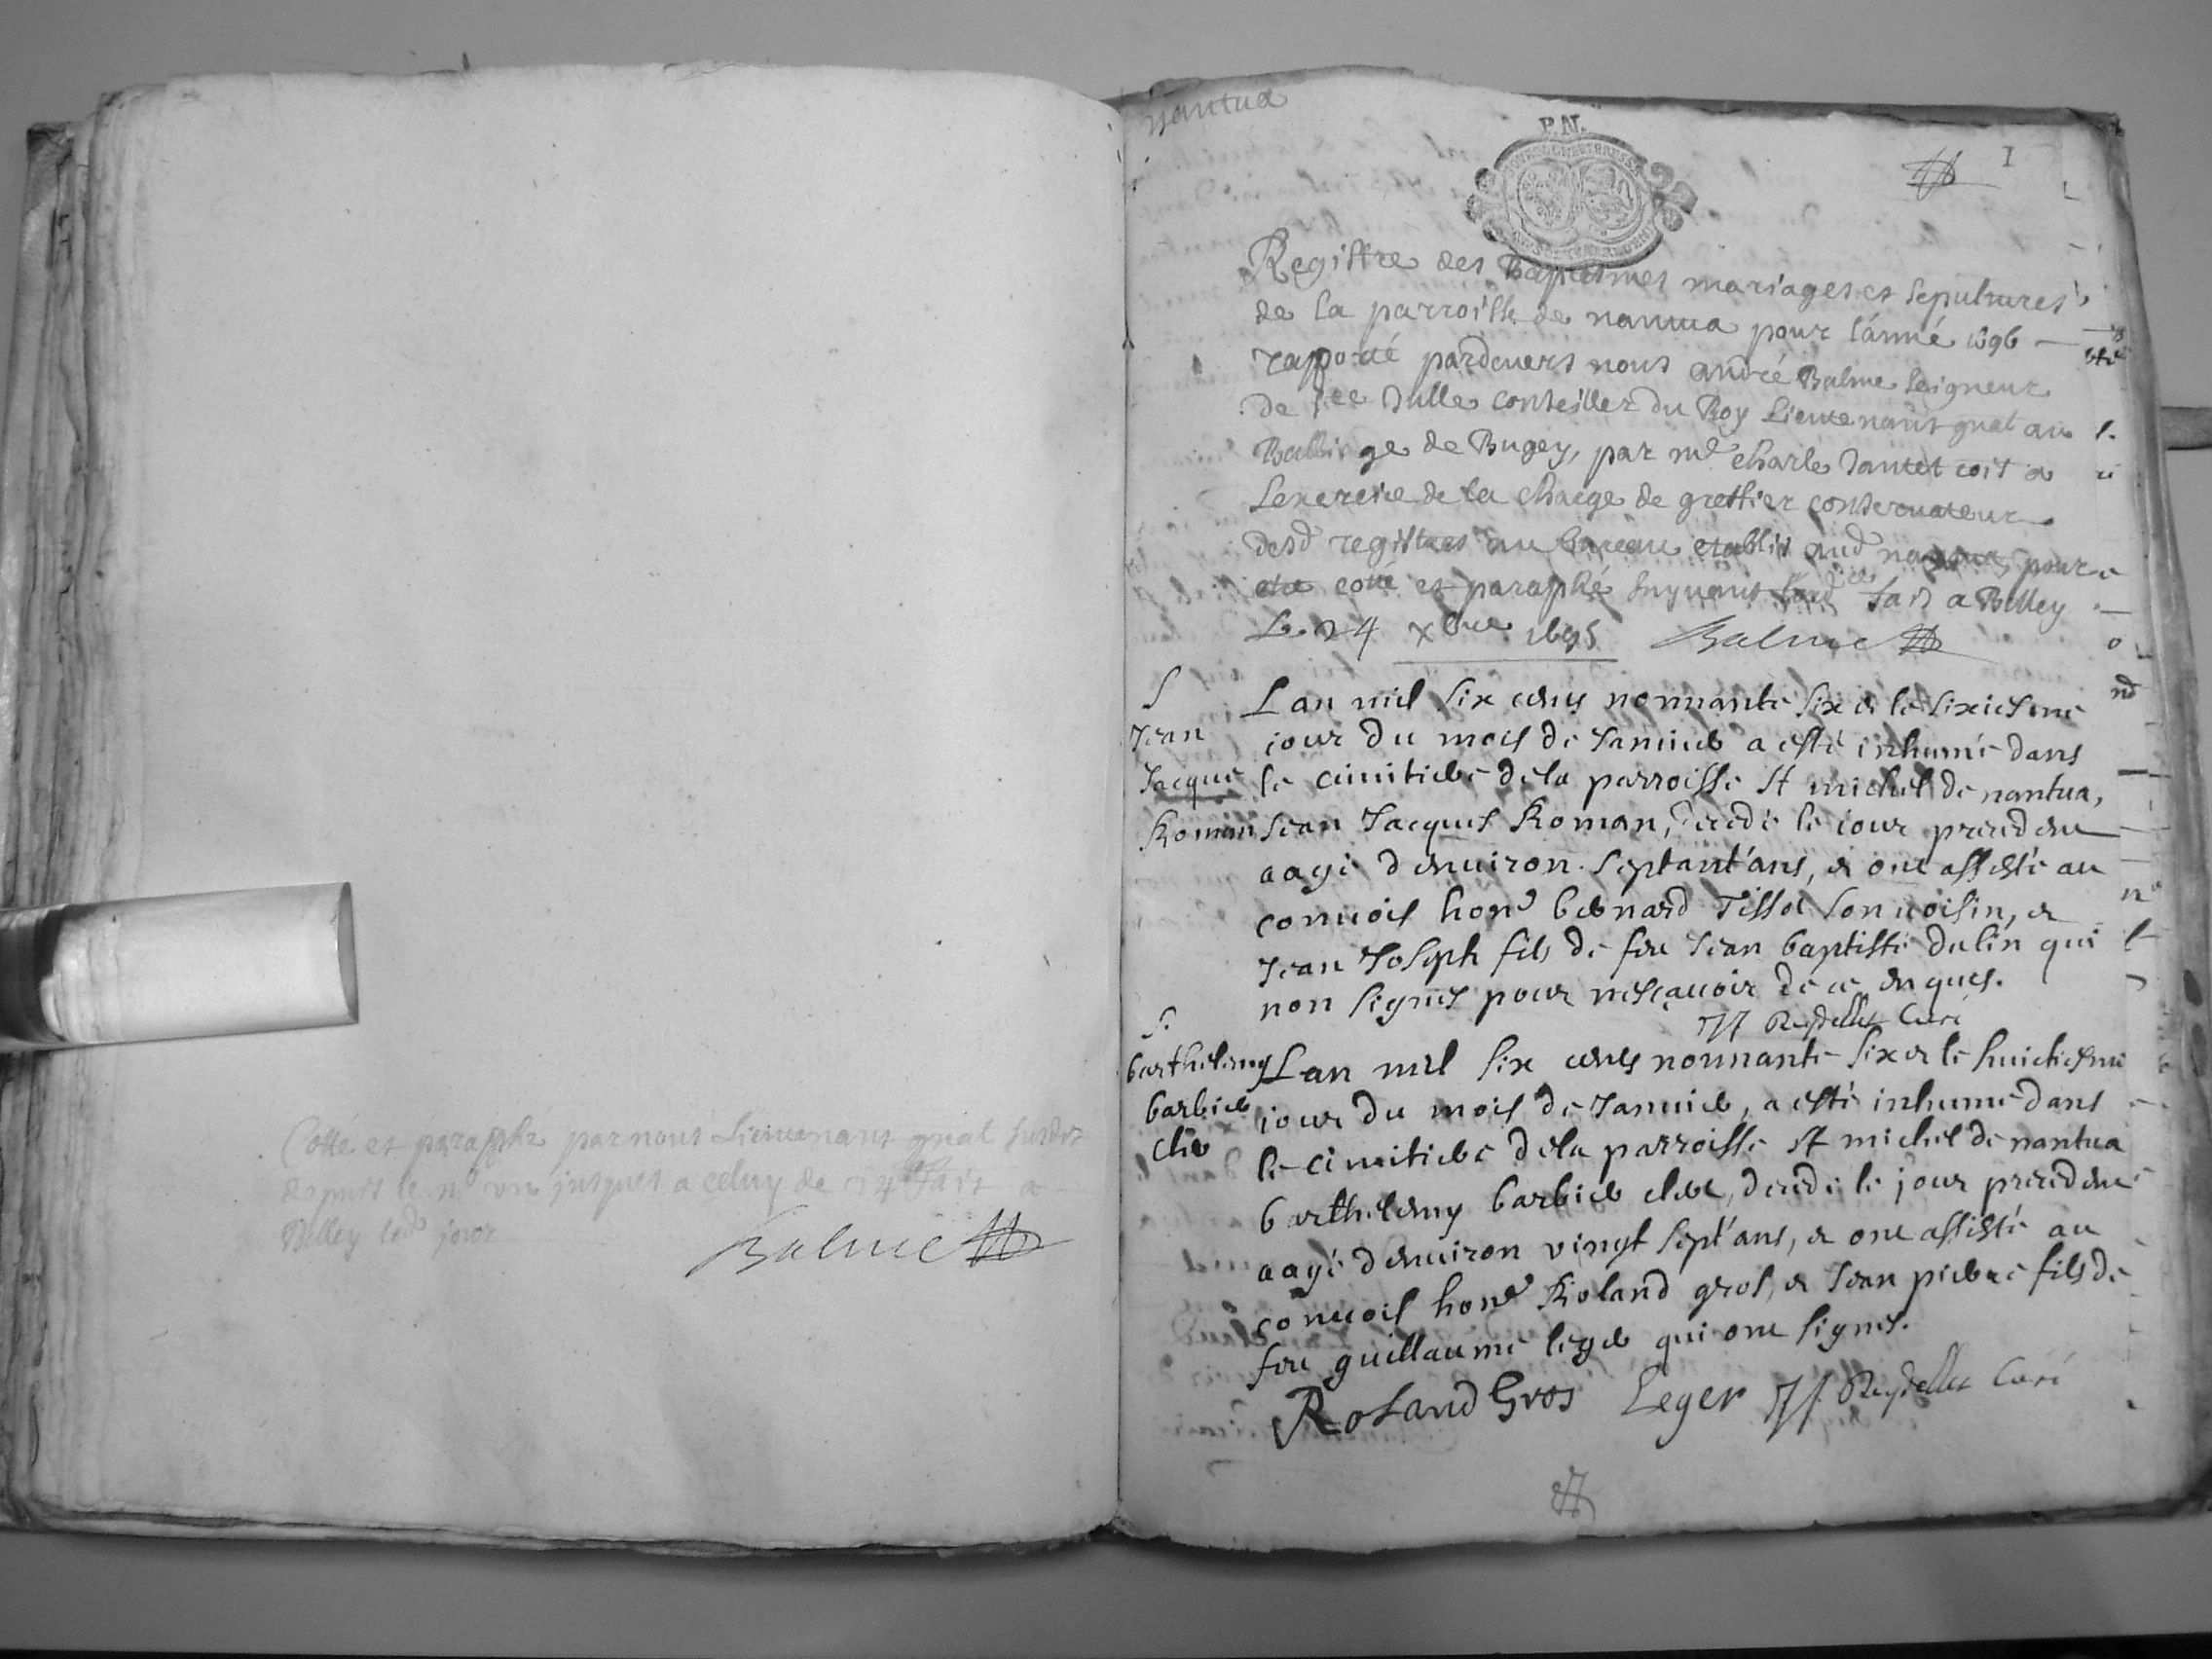 Cotté et paraphé par nous Lieutenant gnal susdit
depuis le n° un jusques a celuy de 74 fait a
Belley led jour
Balme
nantua
P.N.
1
Registre des Baptesmes mariages et sepultures
de la parroisse de nantua pour l'année 1696
rapporté pardevers nous andré Balme seigneur
de conseiller du Roy Lieutenant gnal au
Balliage de Bugey, par me charle
Lexercice de la charge de greffier conservateur
desd registres au bureau etablis aud nantua pour
etre cotté et paraphé suyvant fait a Belley
Le 24 xbre 1695 Balme
S
Jean
Jacque
Roman
Lan mil six cents nonnante six & le sixiesme
iour du mois de Januier a esté inhumé dans
le cimitiere de la parroisse st michel de nantua,
Jean Jacques Roman, decedé le iour precedent
aagé d'enuiron septant'ans, & ont assisté au
conuois hond bernard Tissot son uoisin, &
Jean Joseph fils de feu Jean baptiste dulin qui
non signés pour nesçauoir de ce enquis.
Reydellet Curé
S.
barthelemy
barbier
clerc
Lan mil six cents nonnante six & le huictiesme
iour du mois de Januier, a esté inhumé dans
le cimitiere de la parroisse st michel de nantua
barthelemy barbier clerc, decedé le jour precedent
aagé d'enuiron vingt sept'ans, & ont assisté au
conuois hond Roland gros, & Jean pierre fils de
feu guillaume leger qui ont signés.
Roland Gros Leger Reydellet Curé